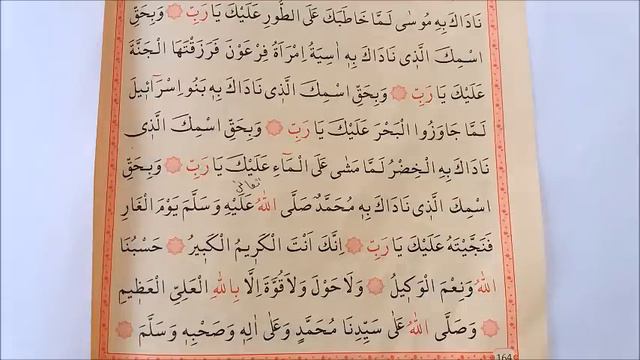 نَادَاكَ بِهِ مُوسٰى لَمَّا خَاطَبَكَ عَلَى الطُّورِ عَلَيْكَ يَا رَبِّ ۞ وَبِحَقِّ
اسْمِكَ الَّذِي نَادَاكَ بِهِ اٰسِيَةُ امْرَاَةُ فِرْعَوْنَ فَرَزَقْتَهَا الْجَنَّةَ
عَلَيْكَ يَا رَبِّ ۞ وَبِحَقِّ اسْمِكَ الَّذِي نَادَاكَ بِهِ بَنُو اِسْرَآئِيلَ
لَمَّا جَاوَزُوا الْبَحْرَ عَلَيْكَ يَا رَبِّ ۞ وَبِحَقِّ اسْمِكَ الَّذِي
نَادَاكَ بِهِ الْخِضْرُ لَمَّا مَشٰى عَلَى الْمَاءِ عَلَيْكَ يَا رَبِّ ۞ وَبِحَقِّ
اسْمِكَ الَّذِي نَادَاكَ بِهِ مُحَمَّدٌ صَلَّى اللهُ تَعَالٰى عَلَيْهِ وَسَلَّمَ يَوْمَ الْغَارِ
فَنَجَّيْتَهُ عَلَيْكَ يَا رَبِّ ۞ اِنَّكَ اَنْتَ الْكَرِيمُ الْكَبِيرُ ۞ حَسْبُنَا
اللهُ وَنِعْمَ الْوَكِيلُ ۞ وَلَا حَوْلَ وَلَا قُوَّةَ اِلَّا بِاللهِ الْعَلِيِّ الْعَظِيمِ
۞ وَصَلَّى اللهُ عَلٰى سَيِّدِنَا مُحَمَّدٍ وَعَلٰى اٰلِهِ وَصَحْبِهِ وَسَلَّمَ ۞
164